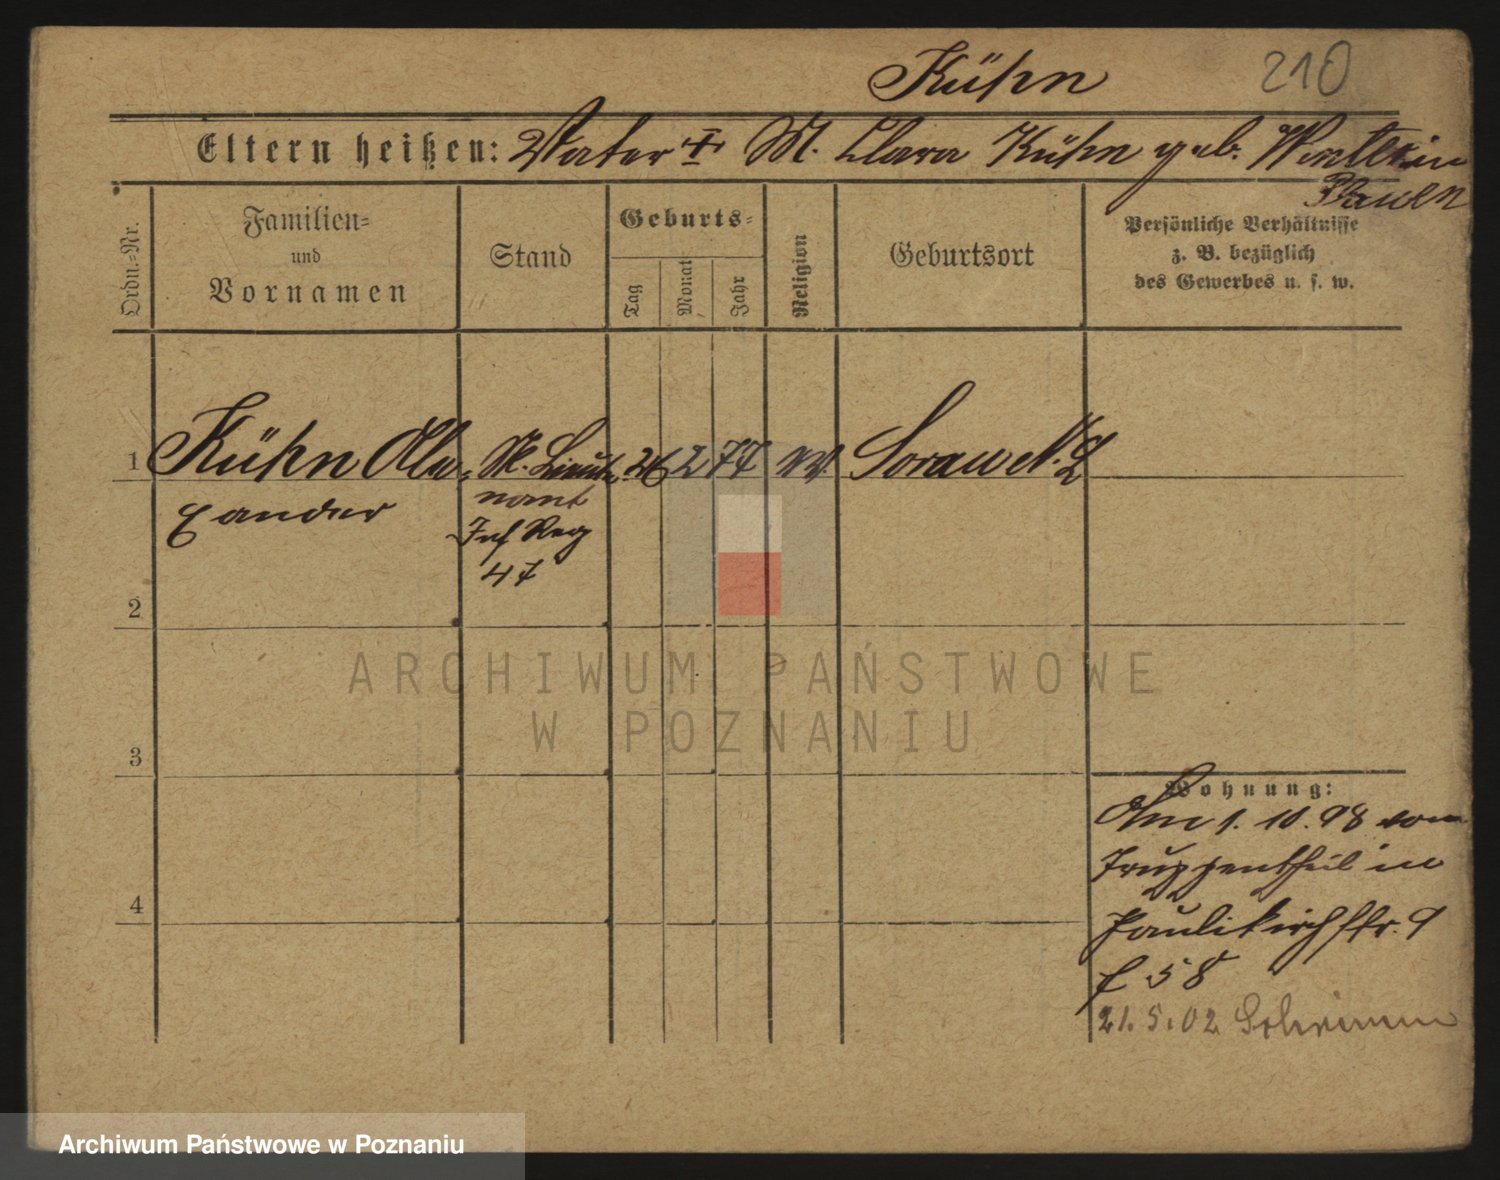 Kühn
210
Eltern heißen: Vater † M. Clara Kühn geb.
Ordn.-Nr.
Familien-
und
Vornamen
Stand
Geburts-
Tag
Monat
Jahr
Religion
Geburtsort
Persönliche Verhältnisse
z. B. bezüglich
des Gewerbes u. s. w.
1 Kühn Alex 26 2 77 ev. Sorau N. L
ander nant
Inf Reg
47
2
3
4
Wohnung:
Am 1. 10. 98 vom
Truppentheil in
Paulikirchstr. 9
58
21.5.02 Schrimm
ARCHIWUM PAŃSTWOWE
W POZNANIU
Archiwum Państwowe w Poznaniu